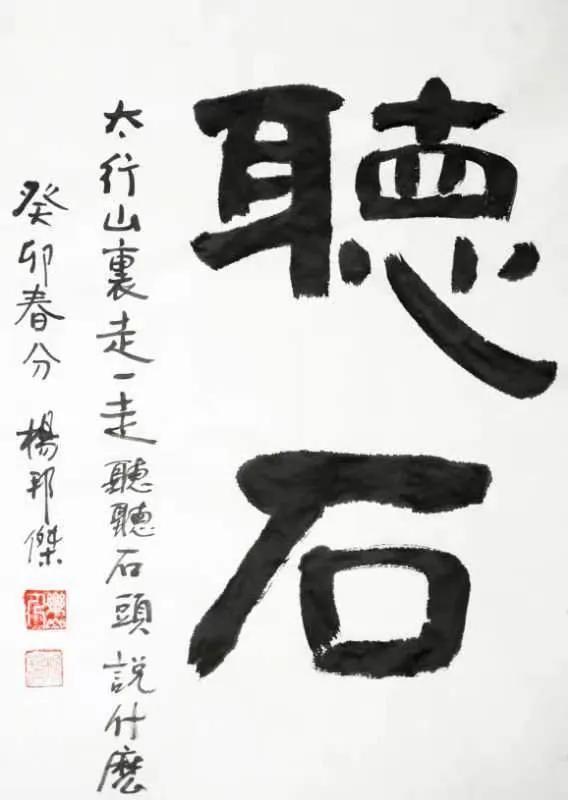 聽石
太行山裏走一走聽聽石頭説什麽
癸卯春分 楊邦傑